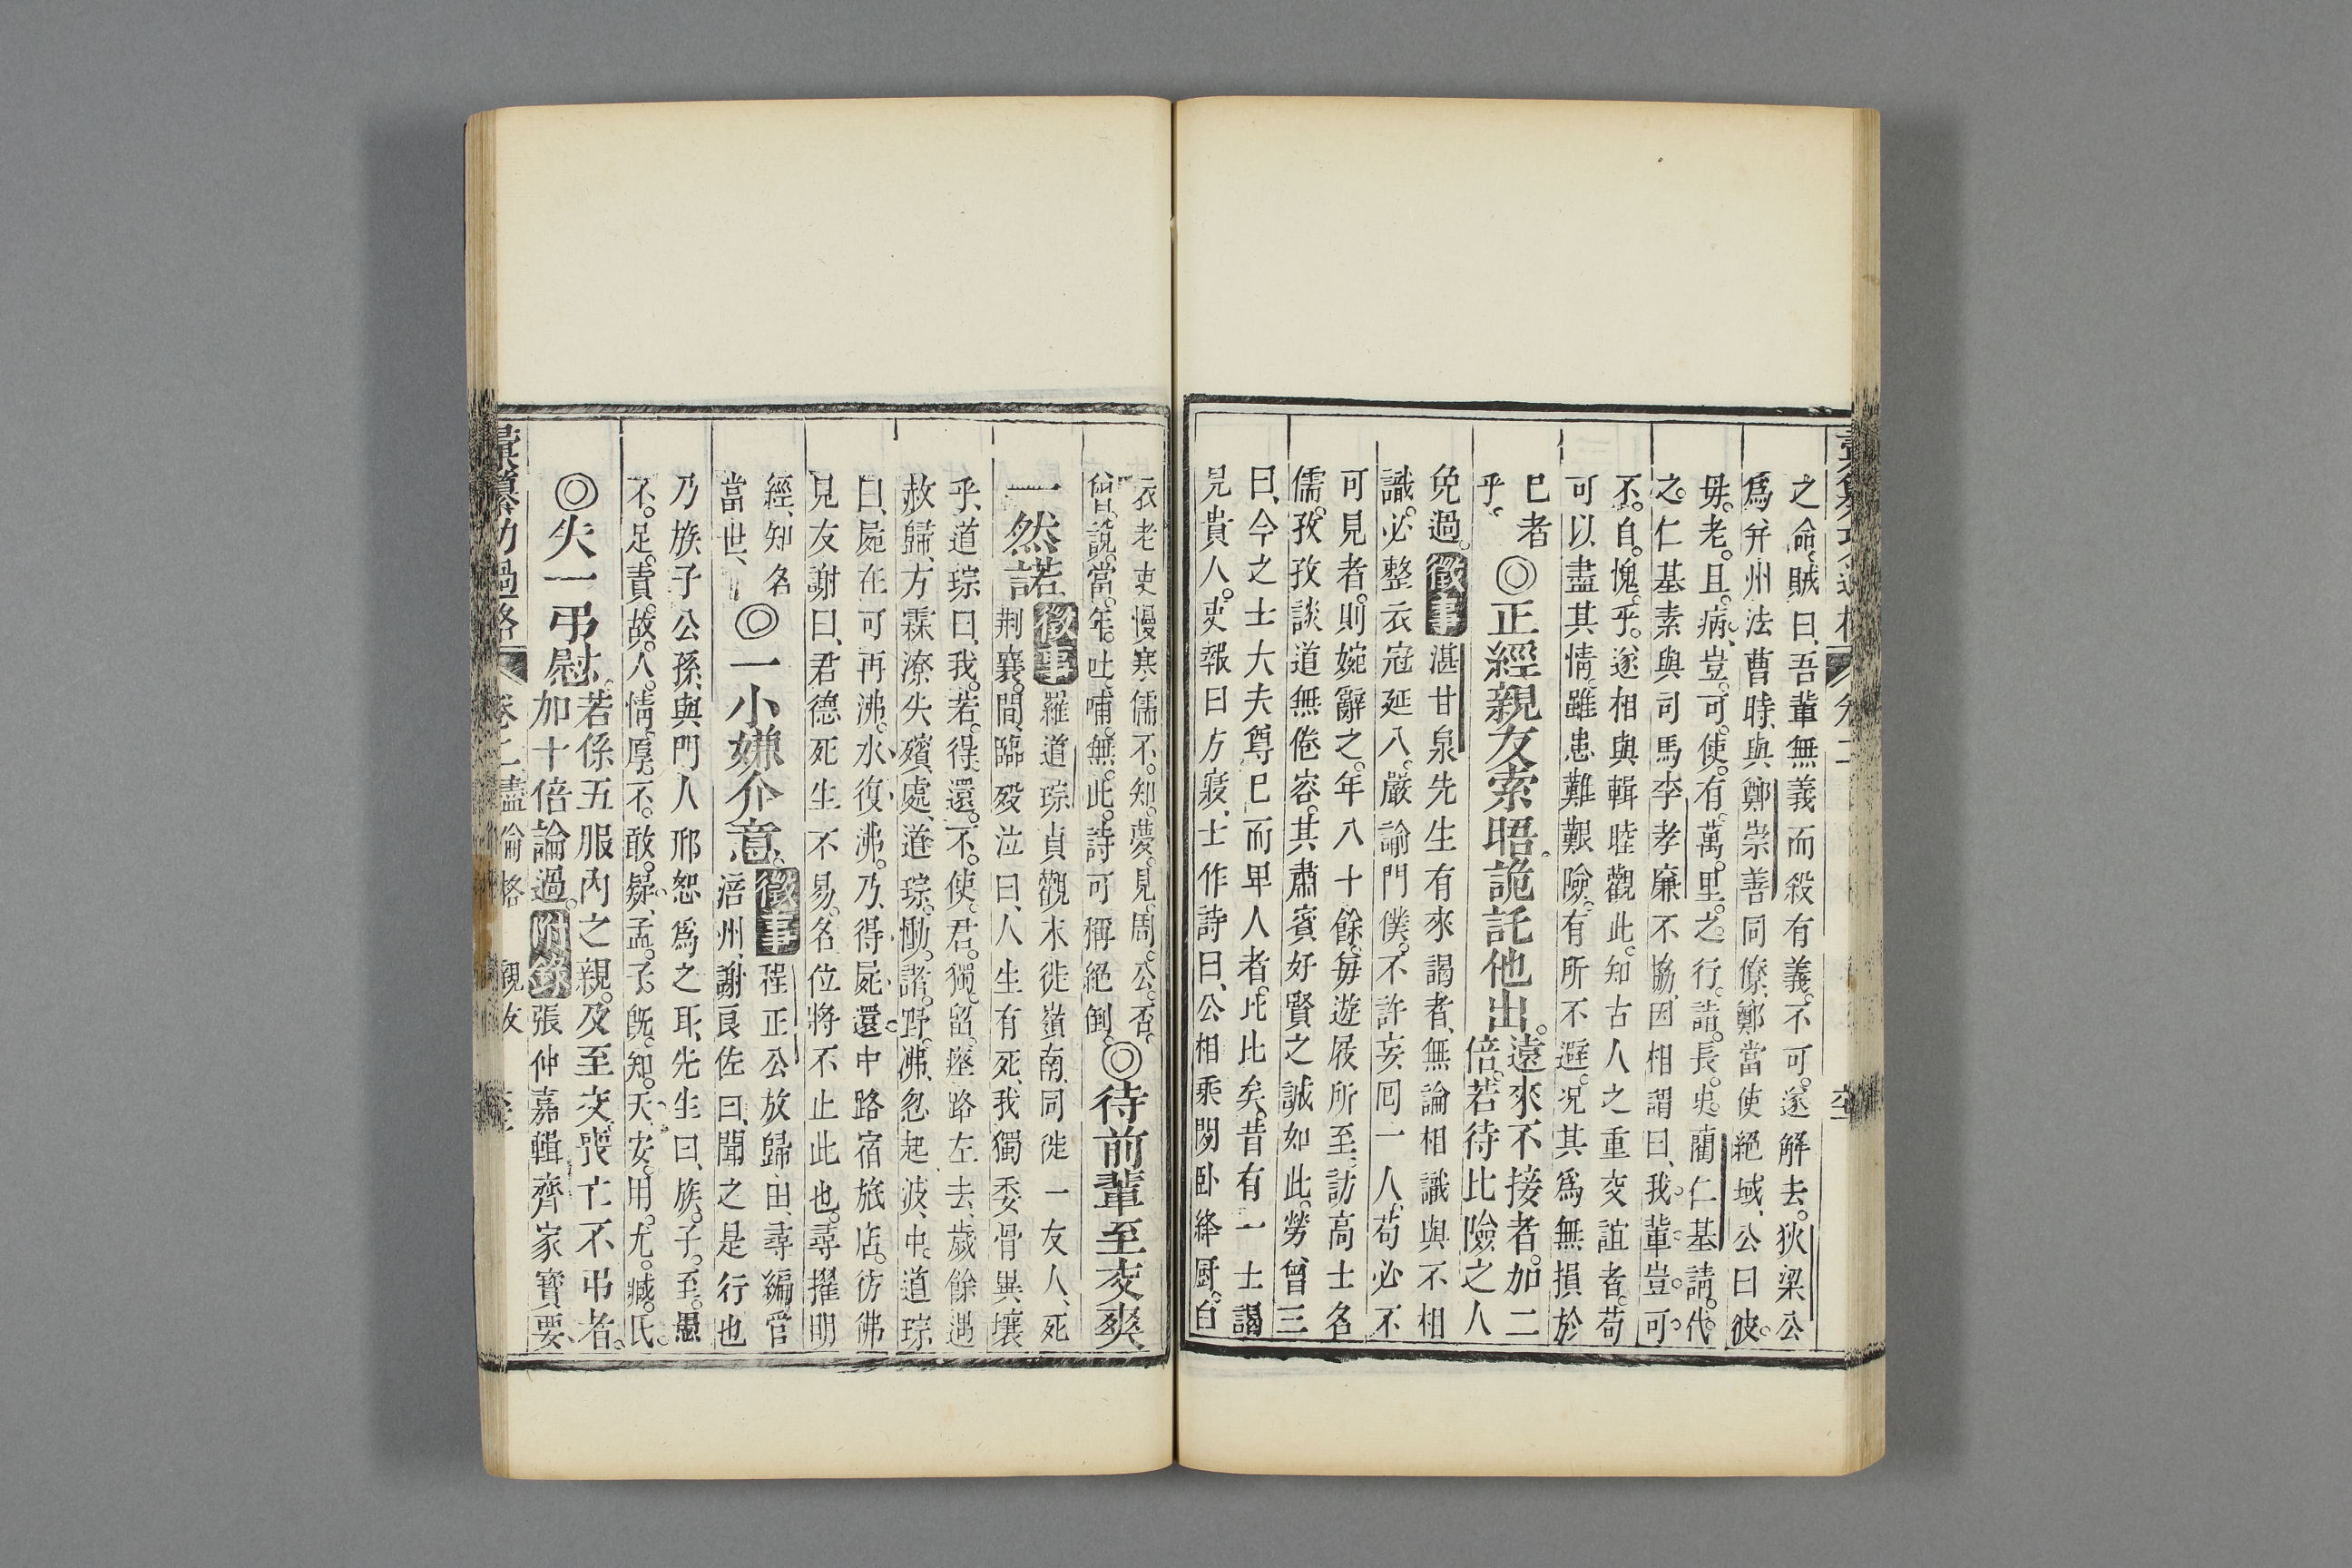 之命賊曰、吾輩無義而殺有義。不可。遂解去。狄梁公
爲并州法曹時、與鄭崇善同僚、鄭當使絕域、公曰彼。
母。老。且。病、豈。可。使。有。萬。里。之。行。請。長。史。藺仁基請。代。
之。仁基素與司馬李孝廉不協、因相謂曰、我。輩。豈。可。
不。自。愧。乎。遂相與輯睦觀此。知古人之重交誼者。苟
可以盡其情。雖患難艱險。有所不避。況其爲無損於
巳者
乎。
◎正經親友索晤。詭託他出。
遠來不接者。加二
倍。若待比險之人
免過。徵事湛甘泉先生有來謁者、無論相識與不相
識。必整衣冠延入。嚴諭門僕。不許妄囘一人。苟必不
可見者。則婉辭之。年八十餘。每遊屐所至。訪高士名
儒。孜孜談道無倦容。其肅賓好賢之誠如此。勞曾三
曰、今之士大夫尊巳而卑人者。比比矣。昔有一士謁
見貴人。吏報曰方寢、士作詩曰、公相乘閒卧絳厨。白
衣老吏慢寒儒不。知。夢。見。周。公。否。
曾。說。當。年。吐。哺。無。此。詩可稱絕倒。
◎待前輩至交爽
一然諾
徵事羅道琮貞觀末徙嶺南、同徙一友人、死
荆襄。間、臨歿泣曰、人生有死、我獨委骨異壤
乎、道琮曰、我。若。得。還。不。使。君。獨。留。瘞路左去、歲餘遇
赦歸、方霖潦失殯處、道琮。慟。諸。野。沸、忽起波、中。道琮
曰、屍在可再沸。水復沸。乃、得屍、還。中路宿旅店。彷彿
見友謝曰、君德死生不易。名位將不止此也。尋擢明
經、知名
當世、
◎一小嫌介意。
徵事程正公放歸田、尋編管
涪州、謝良佐曰、聞之是行也
乃族子公孫、與門人邢恕爲之耳、先生曰、族。子。至。愚
不。足。責。故。人。情。厚。不。敢。疑、孟。子。旣。知。天。安。用。尤。臧。氏。
◎失一弔慰。
若係五服內之親。及至交、喪亡不弔者。
加十倍論過。附錄張仲嘉輯齊家寶要、
彙纂功過格 卷二盡倫格